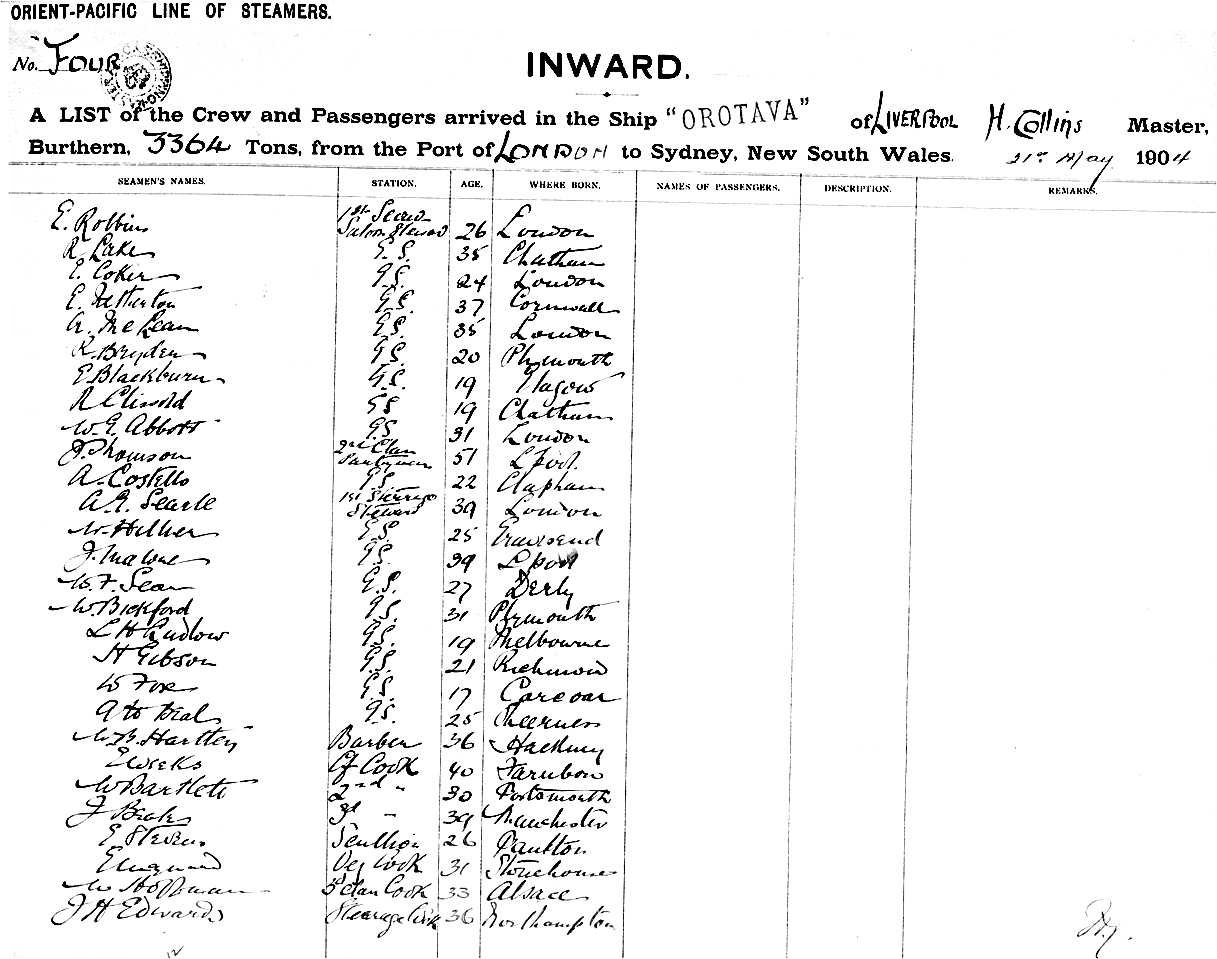 ORIENT-PACIFIC LINE OF STEAMERS.
No. FOUR
INWARD.
A LIST of the Crew and Passengers arrived in the Ship "OROTAVA" of LIVERPOOL H. Collins Master,
Burthern, 3364 Tons, from the Port of LONDON to Sydney, New South Wales. 21st May 1904
SEAMEN'S NAMES. STATION. AGE. WHERE BORN. NAMES OF PASSENGERS. DESCRIPTION. REMARKS.
1st
E. Robbins Saloon Steward 26 London
R Lake G.S. 35 Chatham
E. Coker G.S. 24 London
E. Hetherton G.S. 37 Cornwall
A. McLean G.S. 35 London
R. Bryden G.S. 20 Plymouth
E Blackburn G.S. 19 Glasgow
R Clissold GS 19 Chatham
W. E. Abbott G.S. 31 London
2nd Class
J. Thomson Pantryman 51 L'pool.
A. Costello G.S. 22 Clapham
1st Steerage
A. E. Searle Steward 39 London
W. Hillier G.S. 25 Gravesend
J. Malone G.S. 39 L'pool
W. F. G.S. 27 Derby
W. Bickford G.S. 31 Plymouth
L H Ludlow G.S. 19 Melbourne
H Gibson G.S. 21 Richmond
W Fox G.S. 17 Carcoar
A Beal G.S. 25 Sheerness
W. B. Hartley Barber 36 Hackney
E Weeks Cf Cook 40
W Bartlett 2nd " 30 Portsmouth
J 3d " 39 Manchester
E Stevens Scullion 26 Paulton
E Veg Cook 31 Stonehouse
W Hoffman Cook 33 Alsace
J H Edwards Steerage Cook 36 Northampton
12